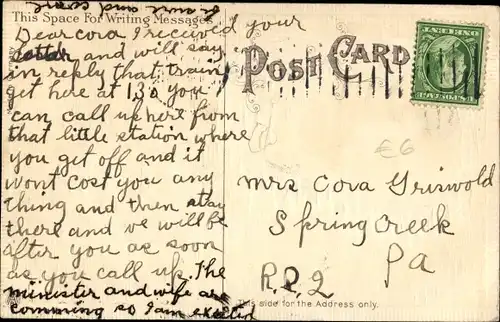 This Space For Writing Messages
Dear cora I received your
letter and will say
in reply that train
get here at 130 you
can call us here from
that little station where
you get off and it
wont cost you any
thing and then stay
there and we will be
after you as soon
as you call up. The
minister and wife are
comming so I am excited
POST CARD
£6
Mrs Cora Griswold
Spring Creek
Pa
R.D.2
This side for the Address only.